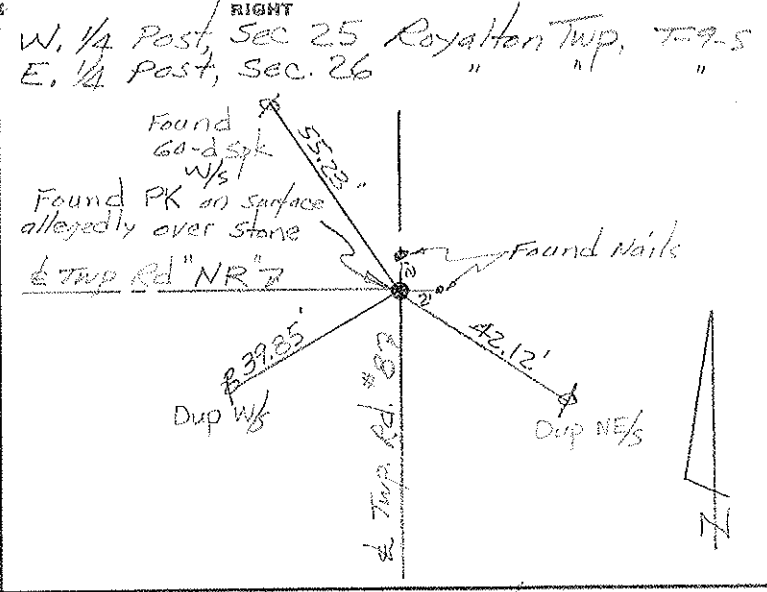 RIGHT
W. 1/4 Post, Sec 25 Royalton Twp, T-9-S
E. 1/4 Post, Sec. 26 " " "
Found
60-d spk
W/s
55.23'
Found PK on surface
allegedly over stone
Found Nails
℄ Twp Rd "NR" 7
2'
2'
39.85'
42.12'
Dup W/s
Dup NE/s
℄ Twp. Rd. #87
N